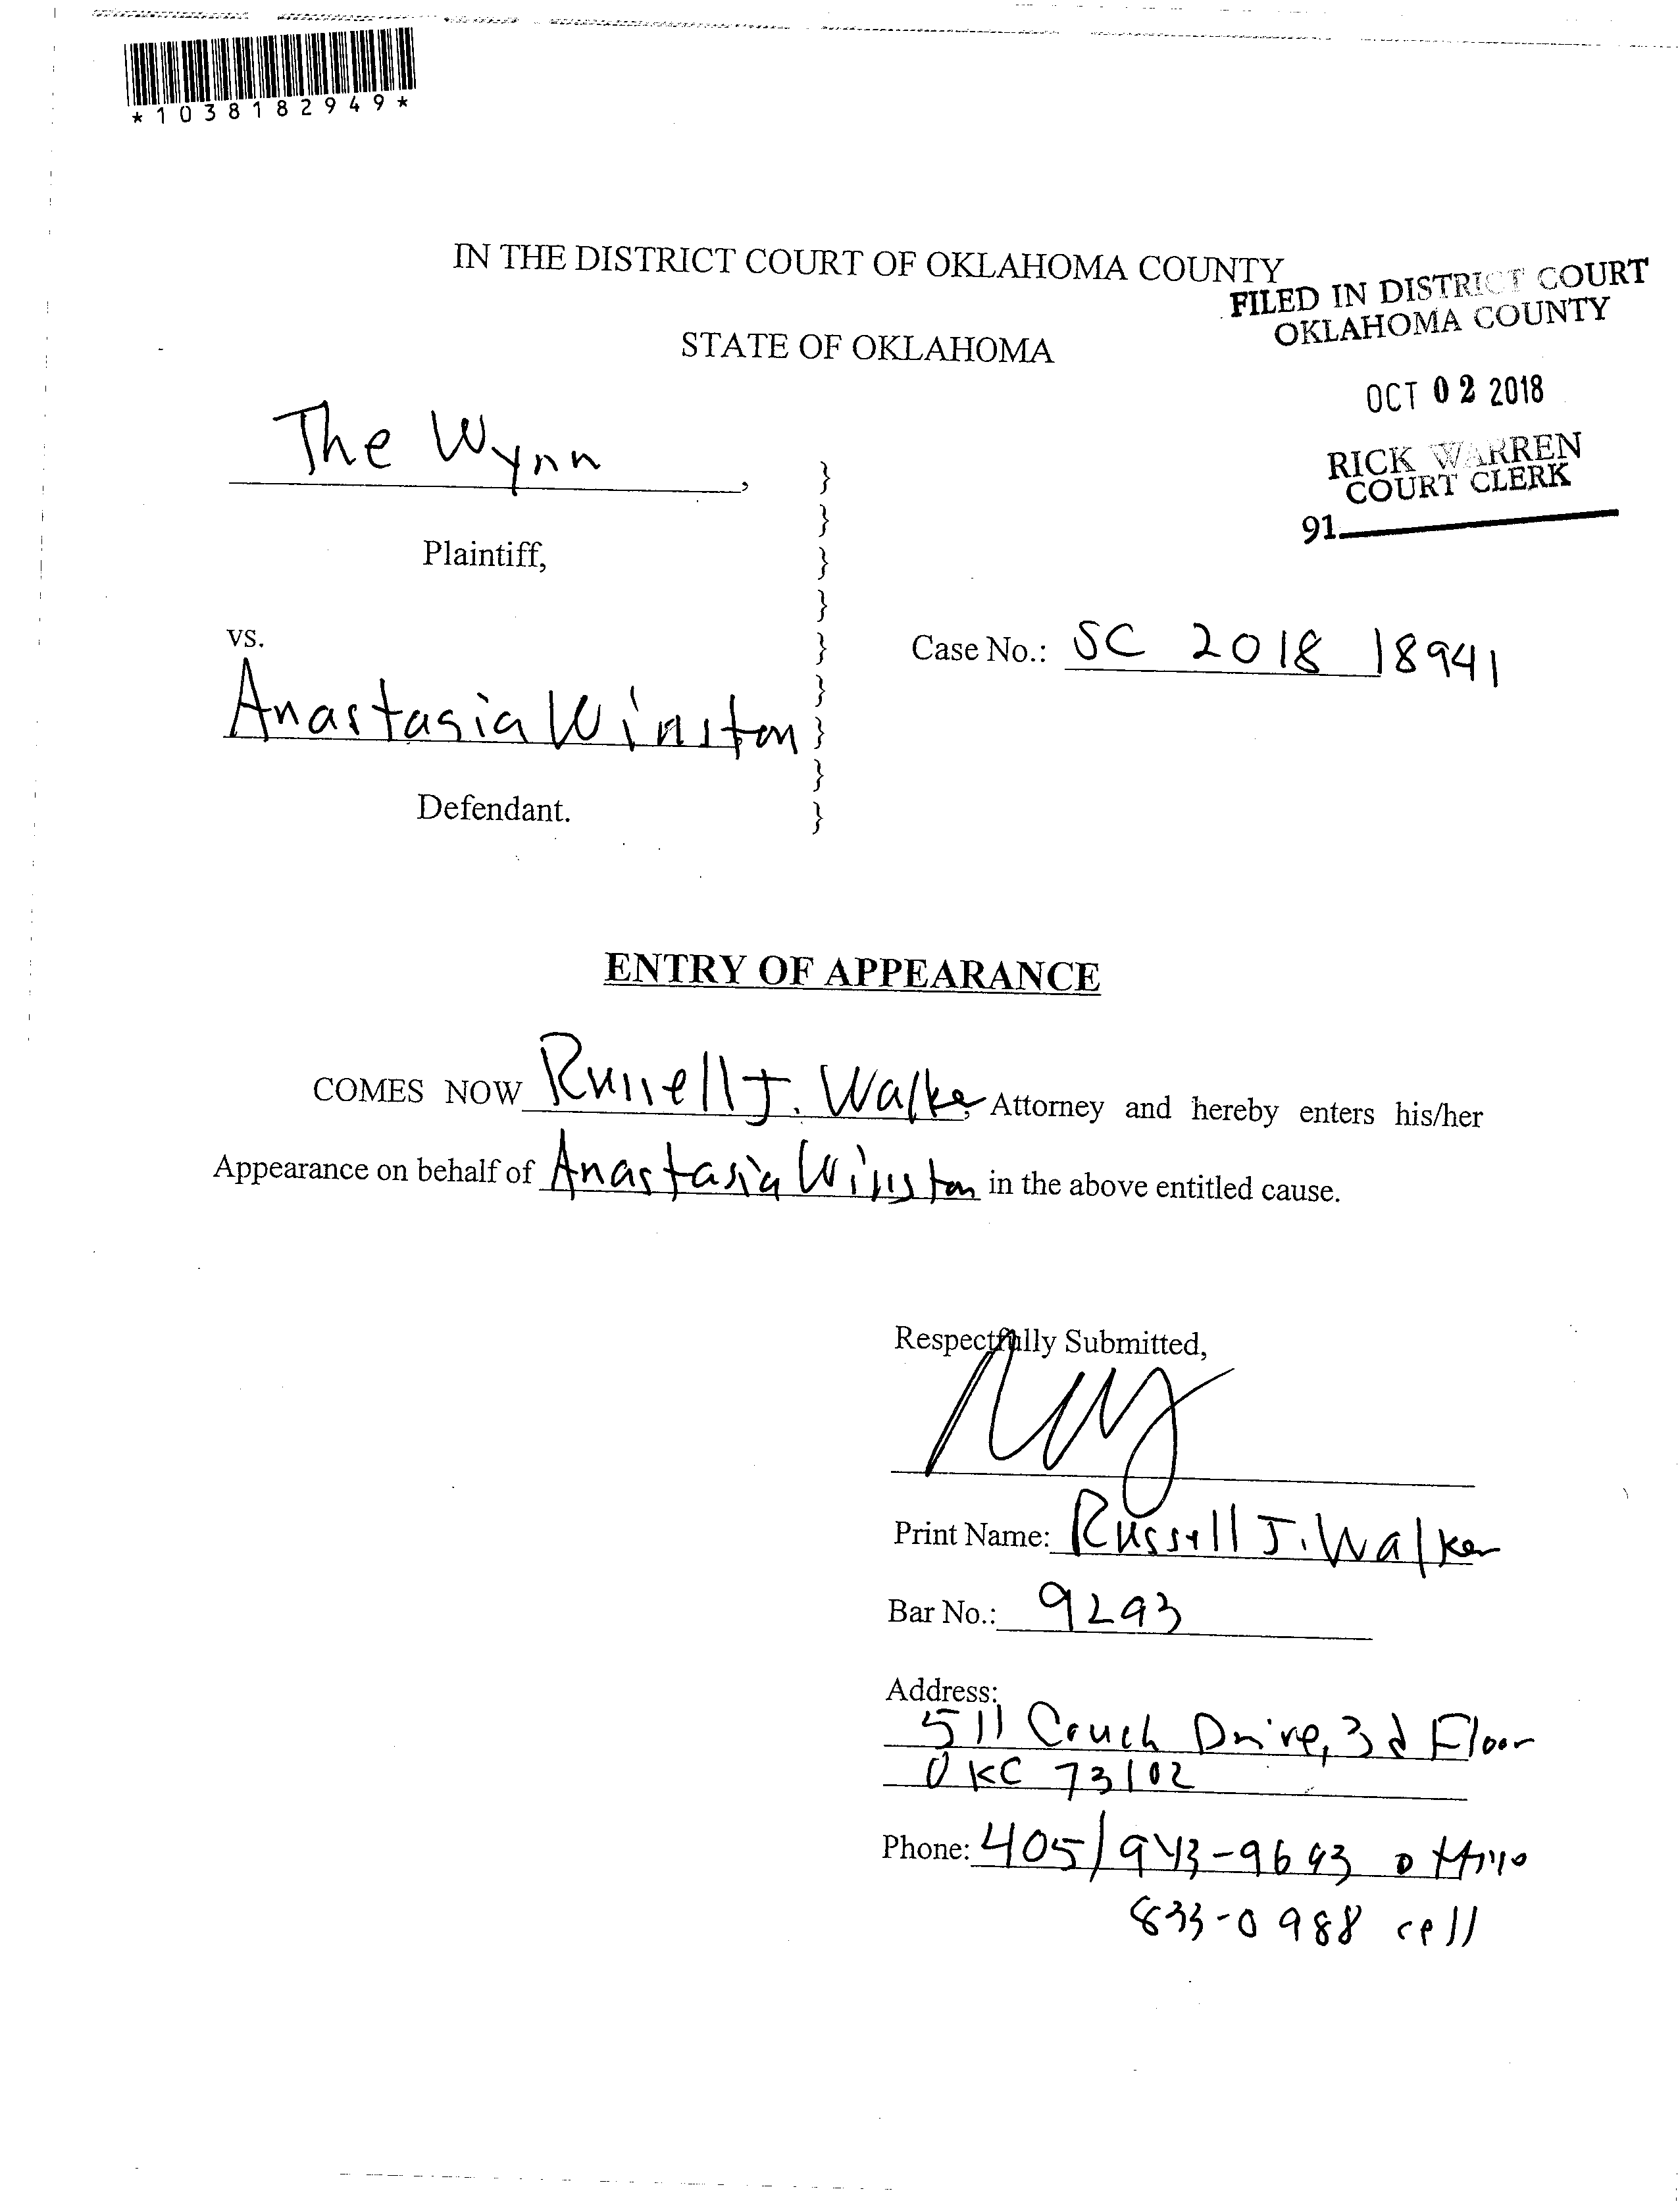 *1038182949*
IN THE DISTRICT COURT OF OKLAHOMA COUNTY
STATE OF OKLAHOMA
FILED IN DISTRICT COURT
OKLAHOMA COUNTY
OCT 02 2018
RICK WARREN
COURT CLERK
91
The Wynn,
Plaintiff,
vs.
Case No.: SC 2018 18941
Anastasia Winston
Defendant.
}
}
}
}
}
}
}
}
}
ENTRY OF APPEARANCE
COMES NOW Russell J. Walker, Attorney and hereby enters his/her
Appearance on behalf of Anastasia Winston in the above entitled cause.
Respectfully Submitted,
Print Name: Russell J. Walker
Bar No.: 9293
Address:
511 Couch Drive, 3d Floor
OKC 73102
Phone: 405/943-9693 office
833-0988 cell